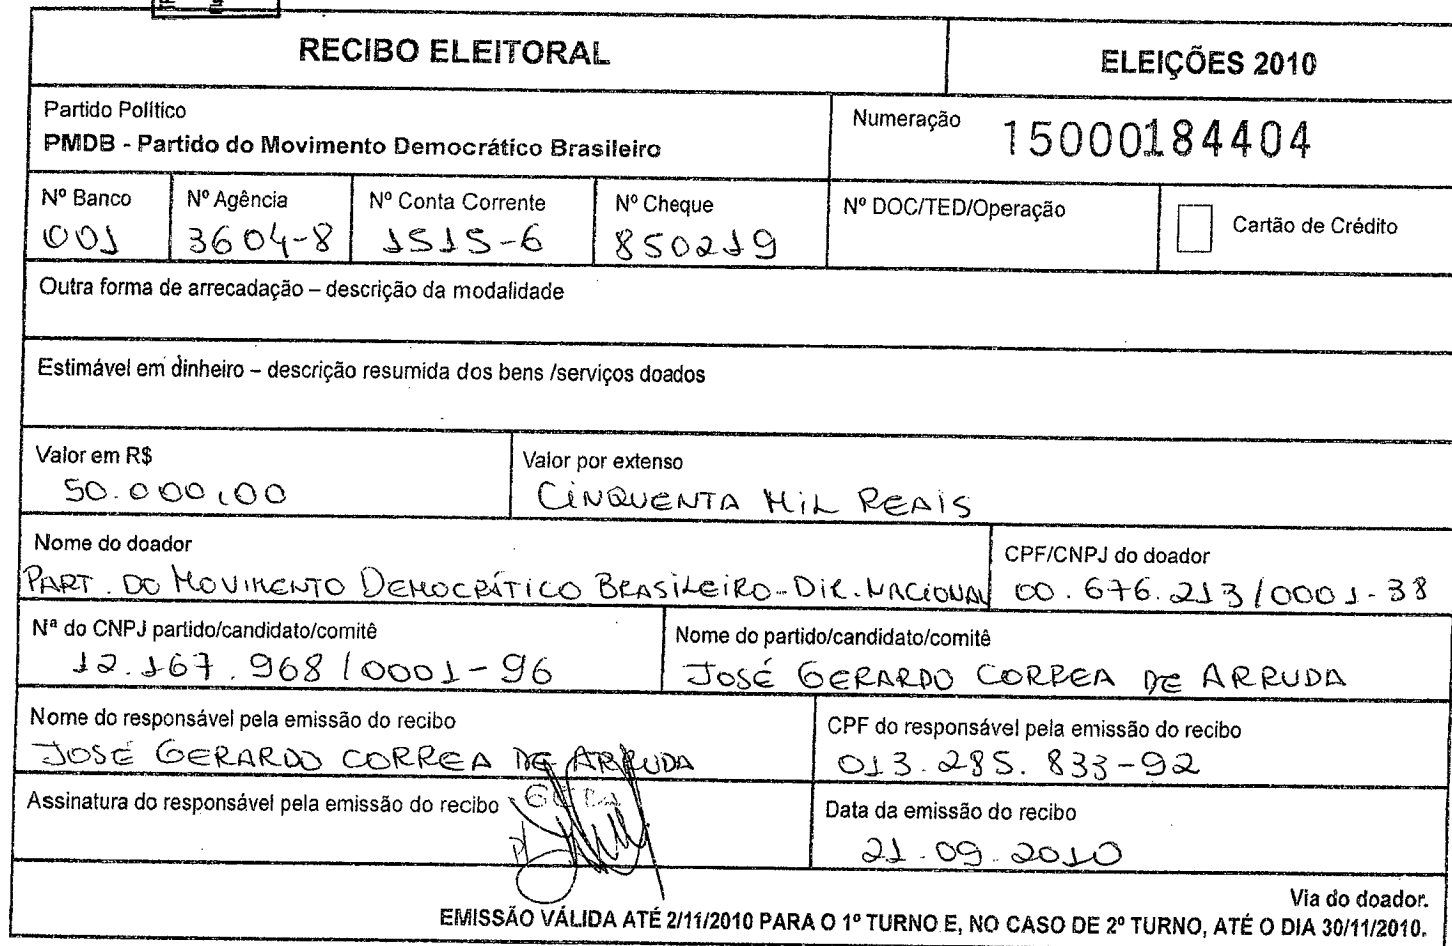 RECIBO ELEITORAL
ELEIÇÕES 2010
Partido Político
PMDB - Partido do Movimento Democrático Brasileiro
Numeração
15000184404
Nº Banco
001
Nº Agência
3604-8
Nº Conta Corrente
1515-6
Nº Cheque
850219
Nº DOC/TED/Operação
Cartão de Crédito
Outra forma de arrecadação – descrição da modalidade
Estimável em dinheiro – descrição resumida dos bens /serviços doados
Valor em R$
50.000,00
Valor por extenso
CINQUENTA MIL REAIS
Nome do doador
PART. DO MOVIMENTO DEMOCRÁTICO BRASILEIRO-DIR.NACIONAL
CPF/CNPJ do doador
00.676.213/0001-38
Nª do CNPJ partido/candidato/comitê
12.167.968/0001-96
Nome do partido/candidato/comitê
JOSÉ GERARDO CORREA DE ARRUDA
Nome do responsável pela emissão do recibo
JOSÉ GERARDO CORREA DE ARRUDA
CPF do responsável pela emissão do recibo
013.285.833-92
Assinatura do responsável pela emissão do recibo
Data da emissão do recibo
21.09.2010
Via do doador.
EMISSÃO VÁLIDA ATÉ 2/11/2010 PARA O 1º TURNO E, NO CASO DE 2º TURNO, ATÉ O DIA 30/11/2010.